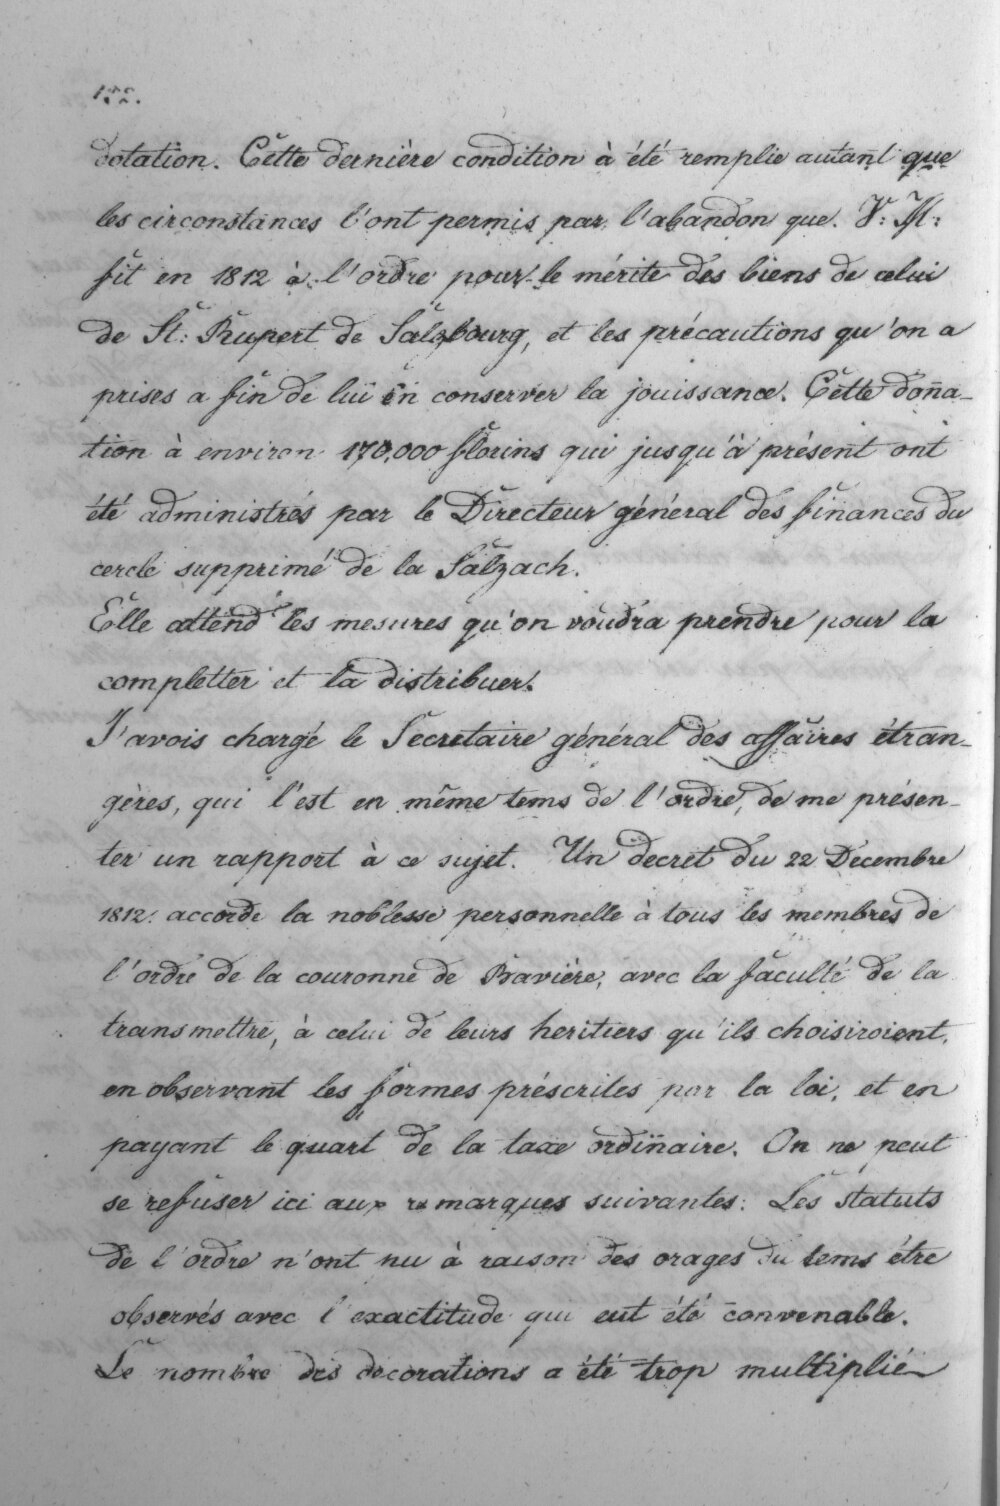 122.
dotation. Cette dernière condition à été remplie autant que
les circonstances l'ont permis par l'abandon que V: M:
fit en 1812 à l'ordre pour le mérite des biens de celui
de St: Rupert de Salzbourg, et les précautions qu'on a
prises a fin de lui en conserver la jouissance. Cette dona-
tion à environ 170,000 florins qui jusqu'à présent ont
été administrés par le Directeur général des finances du
cercle supprimé de la Salzach.
Elle attend les mesures qu'on voudra prendre pour la
completter et la distribuer.
J'avois chargé le Secretaire général des affaires étran-
gères, qui l'est en même tems de l'ordre, de me présen-
ter un rapport à ce sujet. Un decret du 22 Decembre
1812. accorde la noblesse personnelle à tous les membres de
l'ordre de la couronne de Bavière, avec la faculté de la
transmettre, à celui de leurs heritiers qu'ils choisiroient,
en observant les formes préscrites par la loi, et en
payant le quart de la taxe ordinaire. On ne peut
se refuser ici aux remarques suivantes: Les statuts
de l'ordre n'ont nu à raison des orages du tems être
observés avec l'exactitude qui eut été convenable.
Le nombre des decorations a été trop multiplié